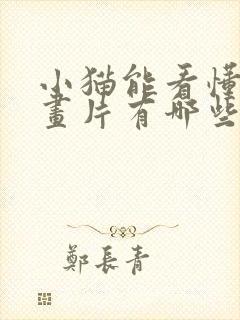 小猫能看懂
畫片有哪些
鄭長青